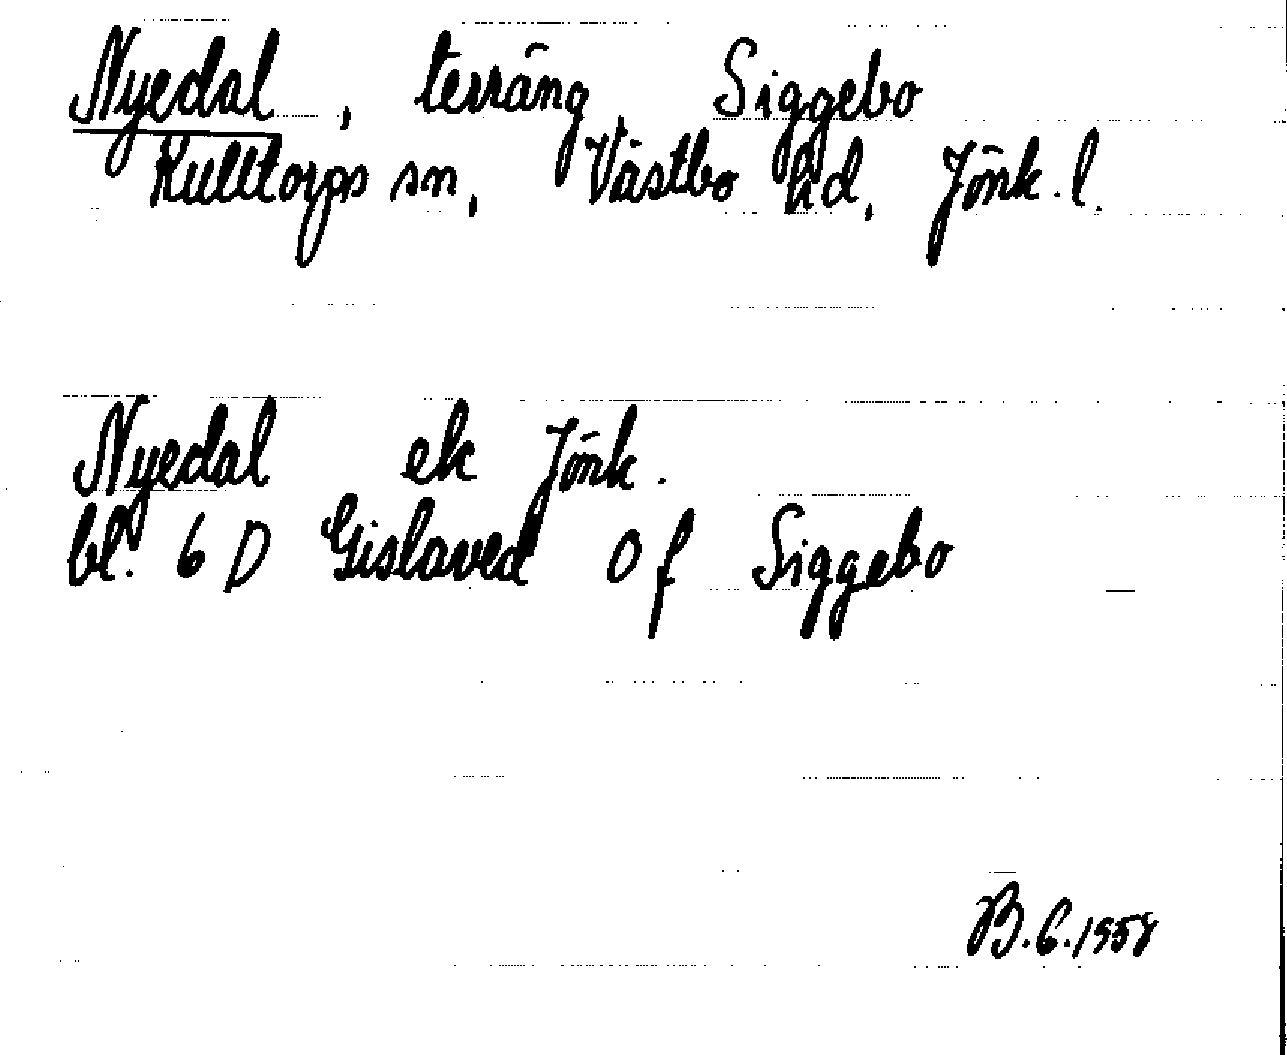 Nyedal, terräng Siggebo
Kulltorps sn, Västbo hd, Jönk. l.
Nyedal ek Jönk.
bl. 6 D Gislaved 0 f Siggebo
B.G.1958